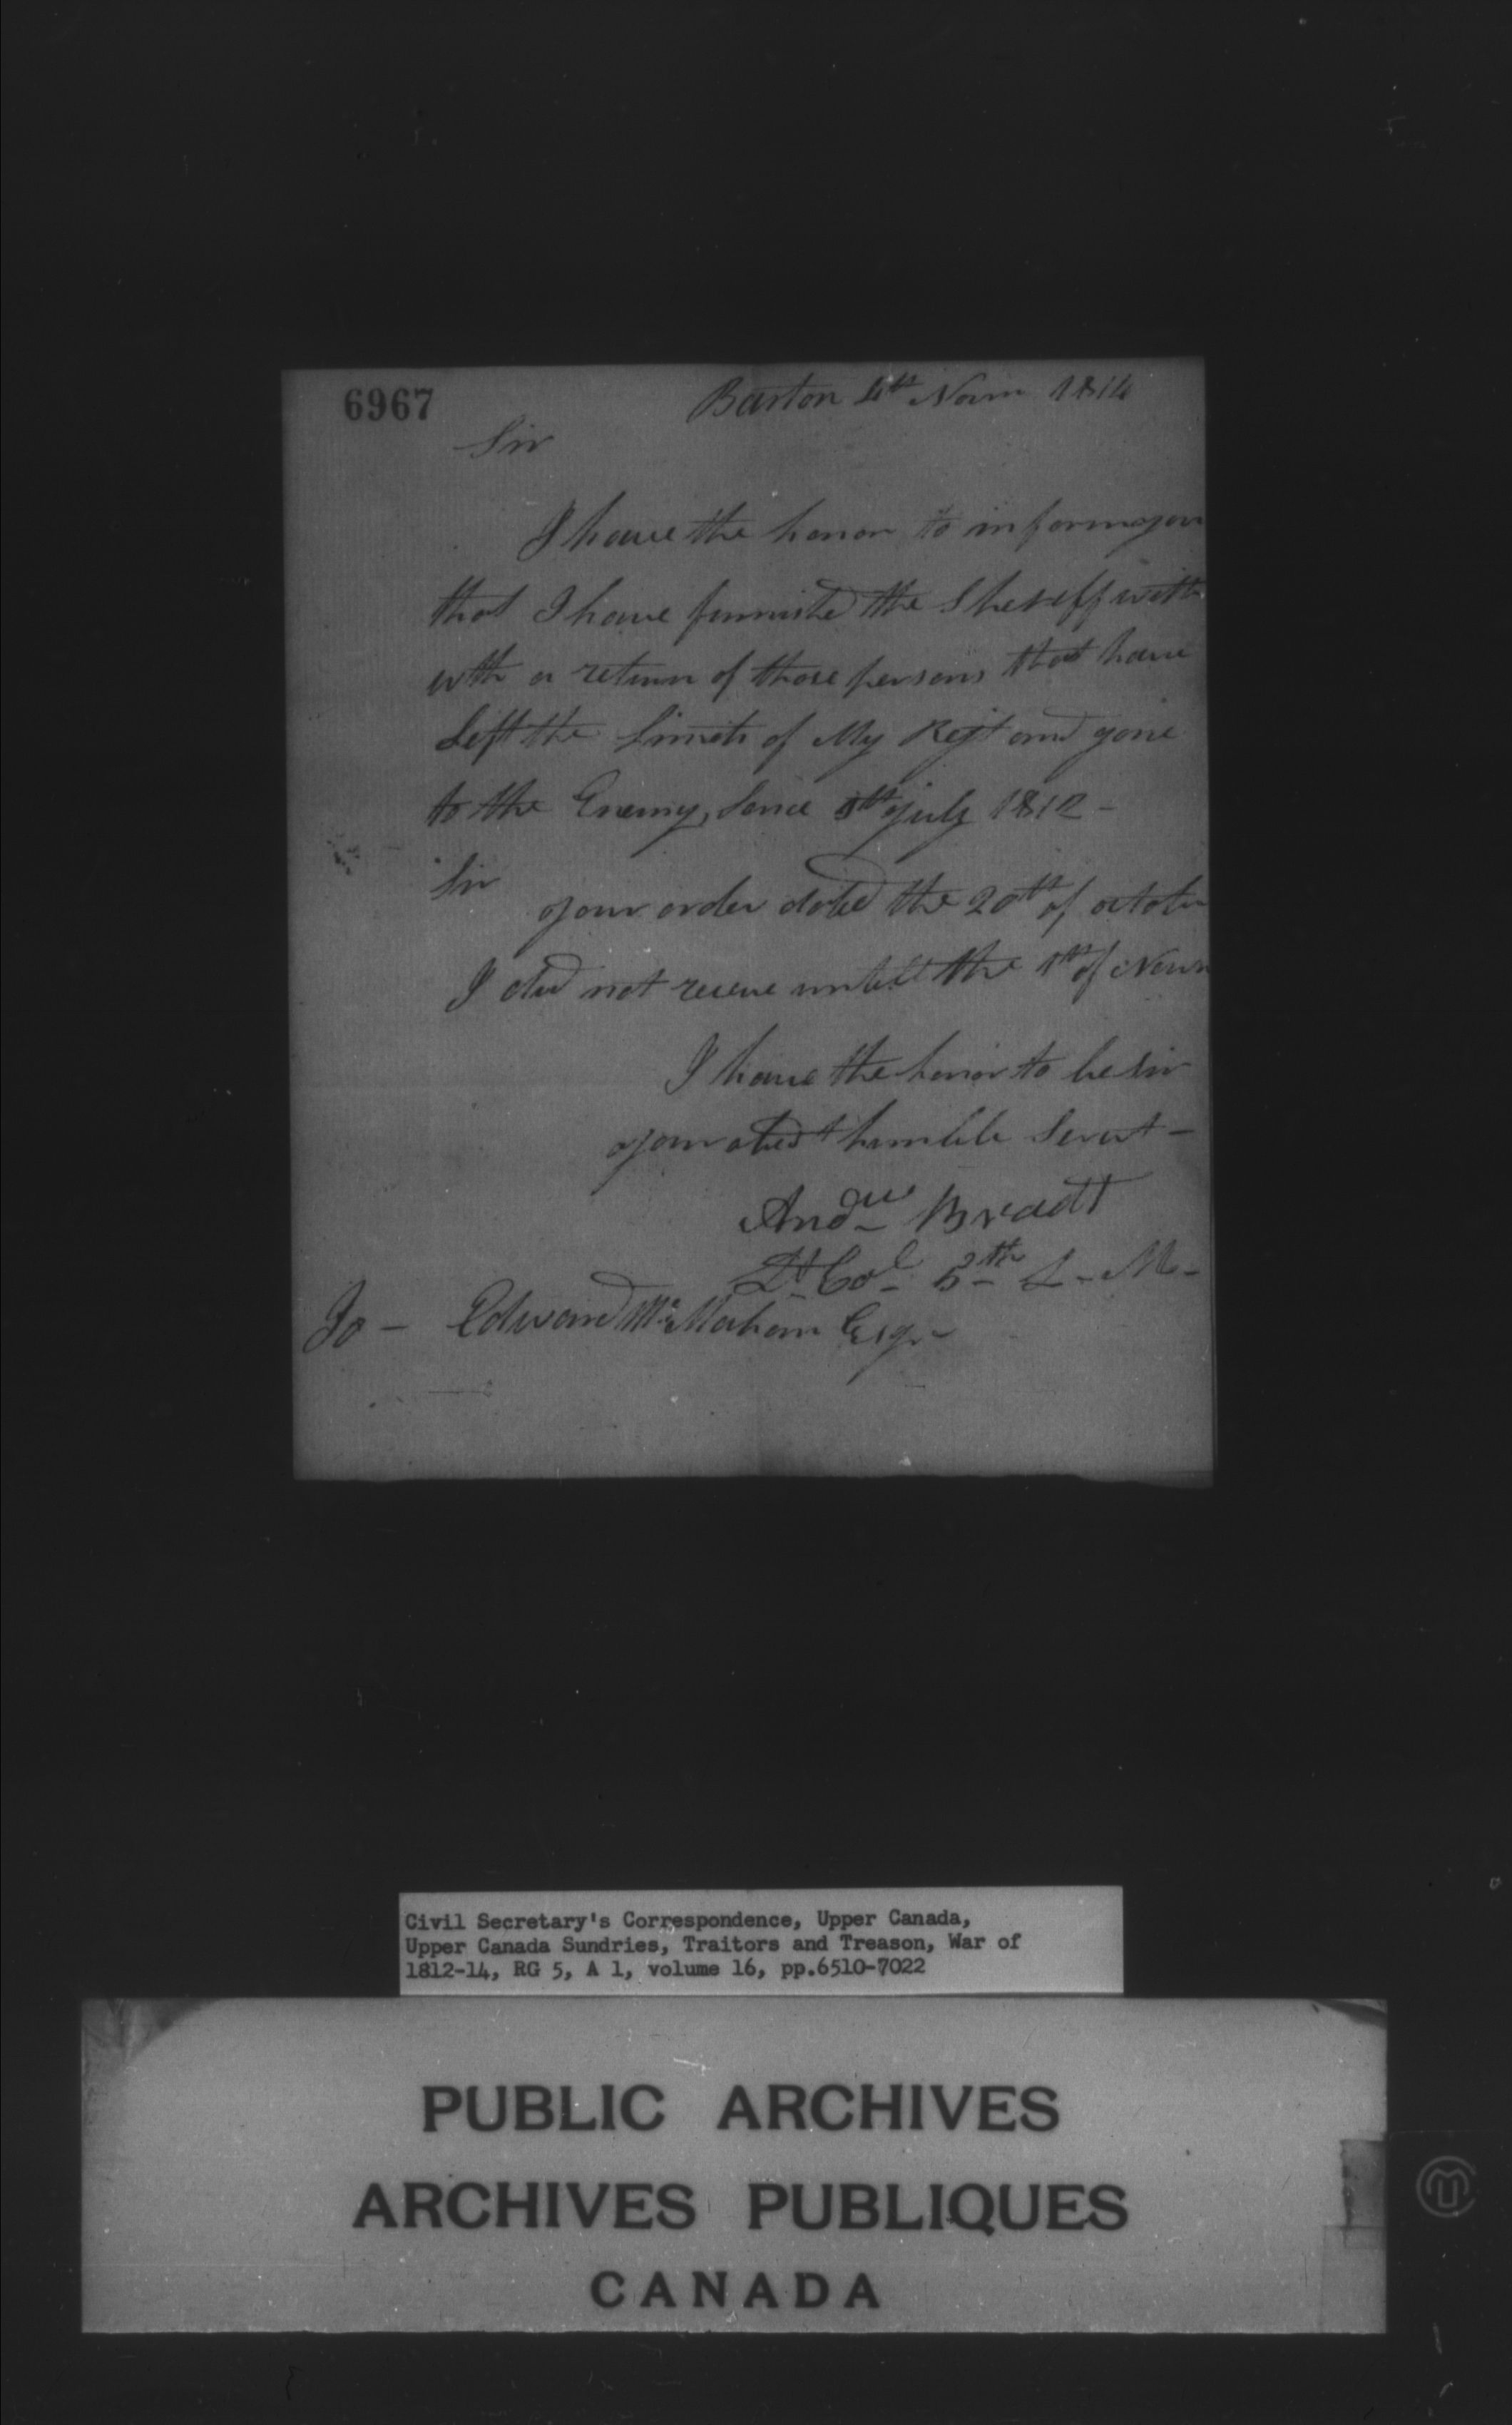 6967
Barton 4th Novm 1814
Sir
I have the honor to inform you
that I have furnishd the Sheriff with
with a return of those persons that have
Left the Limets of My Regt and gone
to the Enemy, Sence july 1812 -
Sir
your order dated the 20th of october
I did not receve untill the 1th of Novm
I have the honor to be Sir
your obedt humble Servt -
Andrw Bradt
Lt Col - 5th L - M -
To - Edward McMahon Esqr
Civil Secretary's Correspondence, Upper Canada,
Upper Canada Sundries, Traitors and Treason, War of
1812-14, RG 5, A 1, volume 16, pp.6510-7022
PUBLIC ARCHIVES
ARCHIVES PUBLIQUES
CANADA